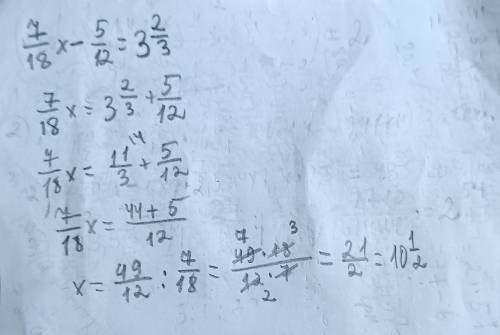 7/18 x - 5/12 = 3 2/3
7/18 x = 3 2/3 + 5/12
7/18 x = 11/3 ⁴ + 5/12
7/18 x = 44 + 5 / 12
x = 49/12 : 7/18 = 49 · 18 / 12 · 7 = 21/2 = 10 1/2